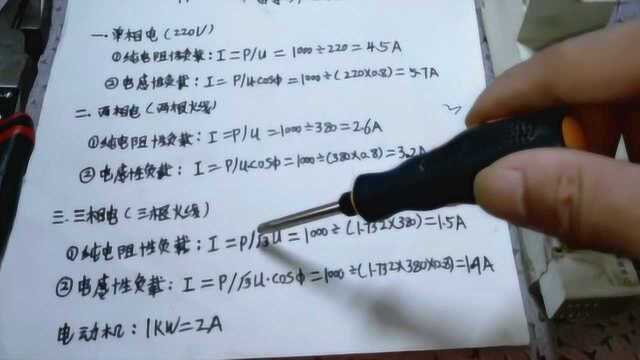 一.单相电(220V)
①纯电阻性负载:I=P/U=1000÷220=4.5A
②电感性负载:I=P/Ucosφ=1000÷(220×0.8)=5.7A
二.两相电(两根火线)
①纯电阻性负载:I=P/U=1000÷380=2.6A
②电感性负载:I=P/Ucosφ=1000÷(380×0.8)=3.2A
三.三相电(三根火线)
①纯电阻性负载:I=P/√3U=1000÷(1.732×380)=1.5A
②电感性负载:I=P/√3U·cosφ=1000÷(1.732×380×0.8)=1.9A
电动机:1KW=2A